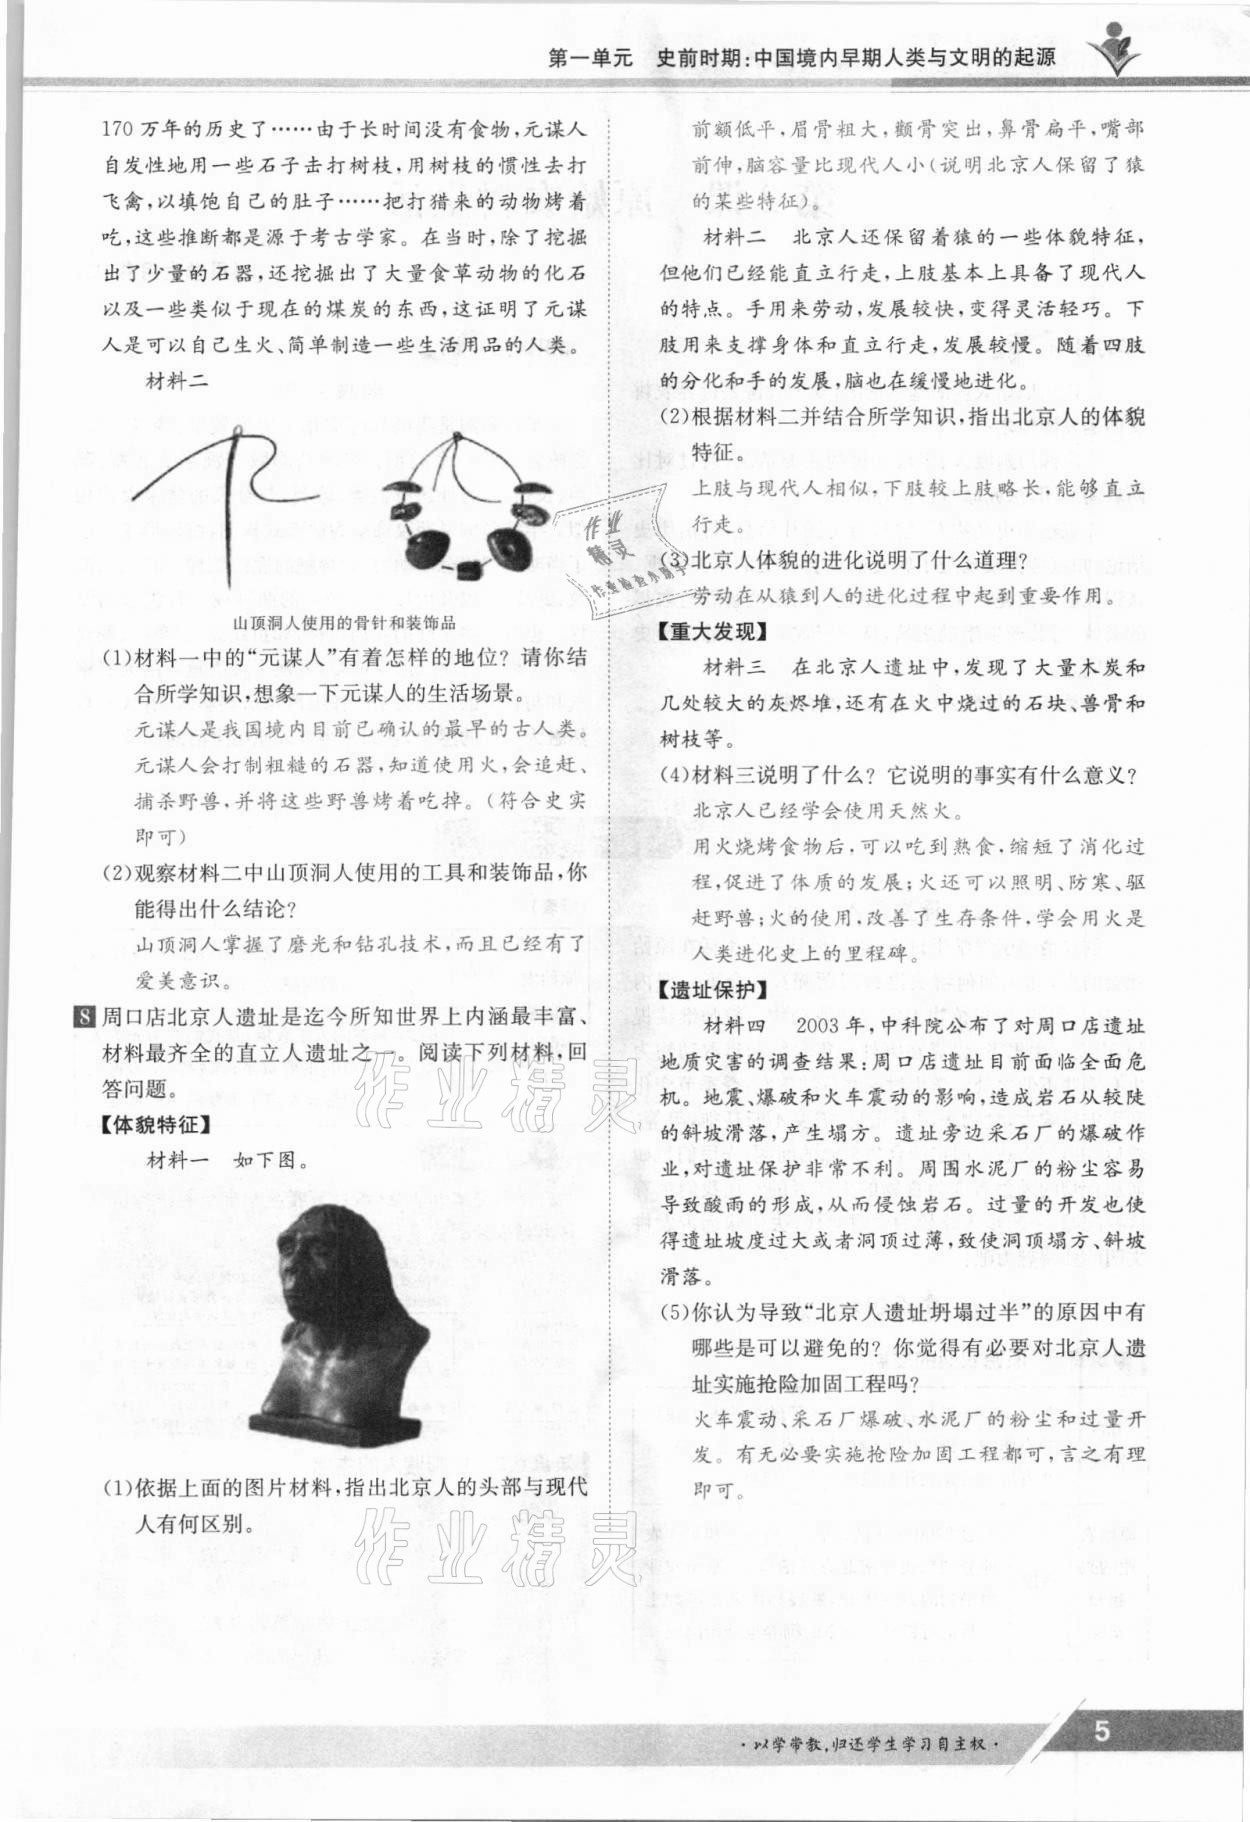 第一单元 史前时期:中国境内早期人类与文明的起源
170 万年的历史了……由于长时间没有食物,元谋人
自发性地用一些石子去打树枝,用树枝的惯性去打
飞禽,以填饱自己的肚子……把打猎来的动物烤着
吃,这些推断都是源于考古学家。在当时,除了挖掘
出了少量的石器,还挖掘出了大量食草动物的化石
以及一些类似于现在的煤炭的东西,这证明了元谋
人是可以自己生火、简单制造一些生活用品的人类。
材料二
山顶洞人使用的骨针和装饰品
(1)材料一中的“元谋人”有着怎样的地位? 请你结
合所学知识,想象一下元谋人的生活场景。
元谋人是我国境内目前已确认的最早的古人类。
元谋人会打制粗糙的石器,知道使用火,会追赶、
捕杀野兽,并将这些野兽烤着吃掉。(符合史实
即可)
(2)观察材料二中山顶洞人使用的工具和装饰品,你
能得出什么结论?
山顶洞人掌握了磨光和钻孔技术,而且已经有了
爱美意识。
8 周口店北京人遗址是迄今所知世界上内涵最丰富、
材料最齐全的直立人遗址之一。阅读下列材料,回
答问题。
【体貌特征】
材料一 如下图。
(1)依据上面的图片材料,指出北京人的头部与现代
人有何区别。
前额低平,眉骨粗大,颧骨突出,鼻骨扁平,嘴部
前伸,脑容量比现代人小(说明北京人保留了猿
的某些特征)。
材料二 北京人还保留着猿的一些体貌特征,
但他们已经能直立行走,上肢基本上具备了现代人
的特点。手用来劳动,发展较快,变得灵活轻巧。下
肢用来支撑身体和直立行走,发展较慢。随着四肢
的分化和手的发展,脑也在缓慢地进化。
(2)根据材料二并结合所学知识,指出北京人的体貌
特征。
上肢与现代人相似,下肢较上肢略长,能够直立
行走。
(3)北京人体貌的进化说明了什么道理?
劳动在从猿到人的进化过程中起到重要作用。
【重大发现】
材料三 在北京人遗址中,发现了大量木炭和
几处较大的灰烬堆,还有在火中烧过的石块、兽骨和
树枝等。
(4)材料三说明了什么? 它说明的事实有什么意义?
北京人已经学会使用天然火。
用火烧烤食物后,可以吃到熟食,缩短了消化过
程,促进了体质的发展;火还可以照明、防寒、驱
赶野兽;火的使用,改善了生存条件,学会用火是
人类进化史上的里程碑。
【遗址保护】
材料四 2003 年,中科院公布了对周口店遗址
地质灾害的调查结果:周口店遗址目前面临全面危
机。地震、爆破和火车震动的影响,造成岩石从较陡
的斜坡滑落,产生塌方。遗址旁边采石厂的爆破作
业,对遗址保护非常不利。周围水泥厂的粉尘容易
导致酸雨的形成,从而侵蚀岩石。过量的开发也使
得遗址坡度过大或者洞顶过薄,致使洞顶塌方、斜坡
滑落。
(5)你认为导致“北京人遗址坍塌过半”的原因中有
哪些是可以避免的? 你觉得有必要对北京人遗
址实施抢险加固工程吗?
火车震动、采石厂爆破、水泥厂的粉尘和过量开
发。有无必要实施抢险加固工程都可,言之有理
即可。
作业
精灵
作业检查小助手
作业精灵
作业精灵
·以学带教,归还学生学习自主权·
5